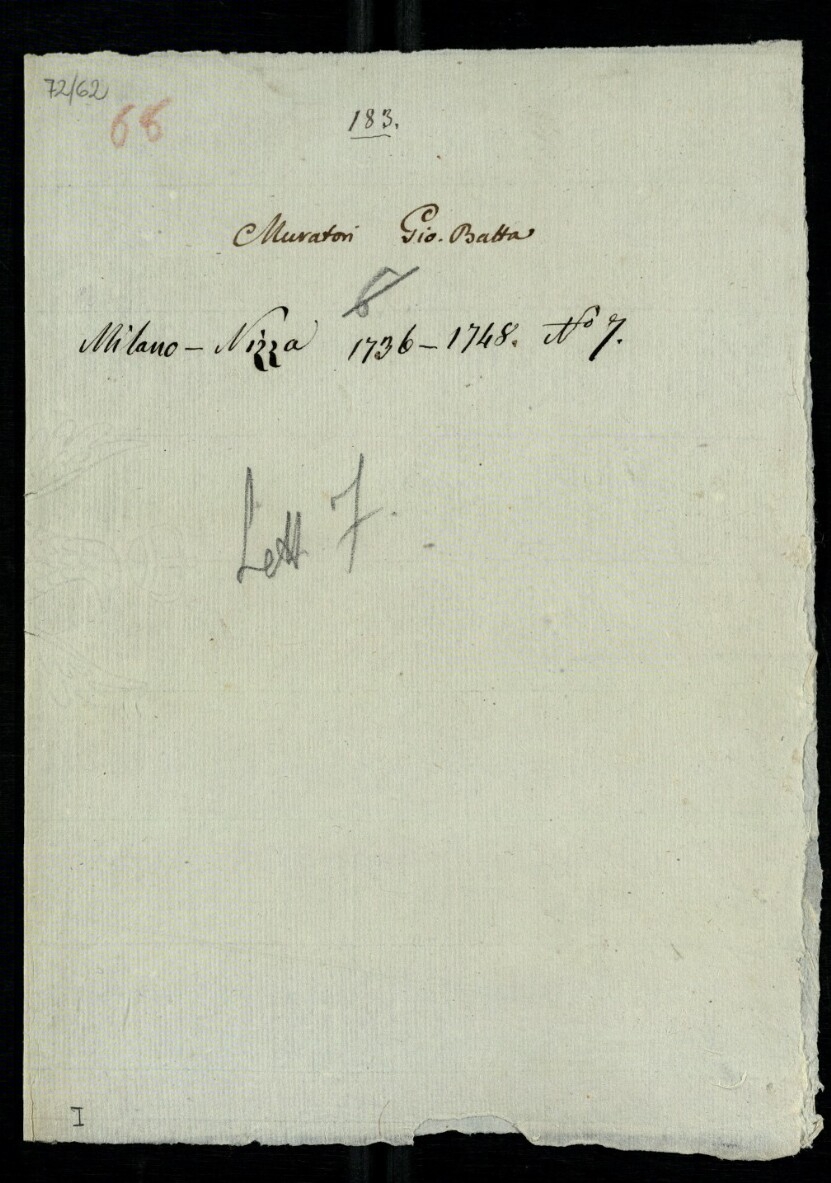 72/62
68
183.
Muratori Gio. Batta
6
Milano - Nizza 1736 - 1748. No 7.
Lett 7.
I